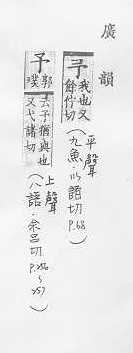 廣韻
予 我也又餘佇切
平聲
(九魚 以諸切 P.68)
予 郭璞云予猶與也又弋諸切
上聲
(八語·余呂切 P.256~257)